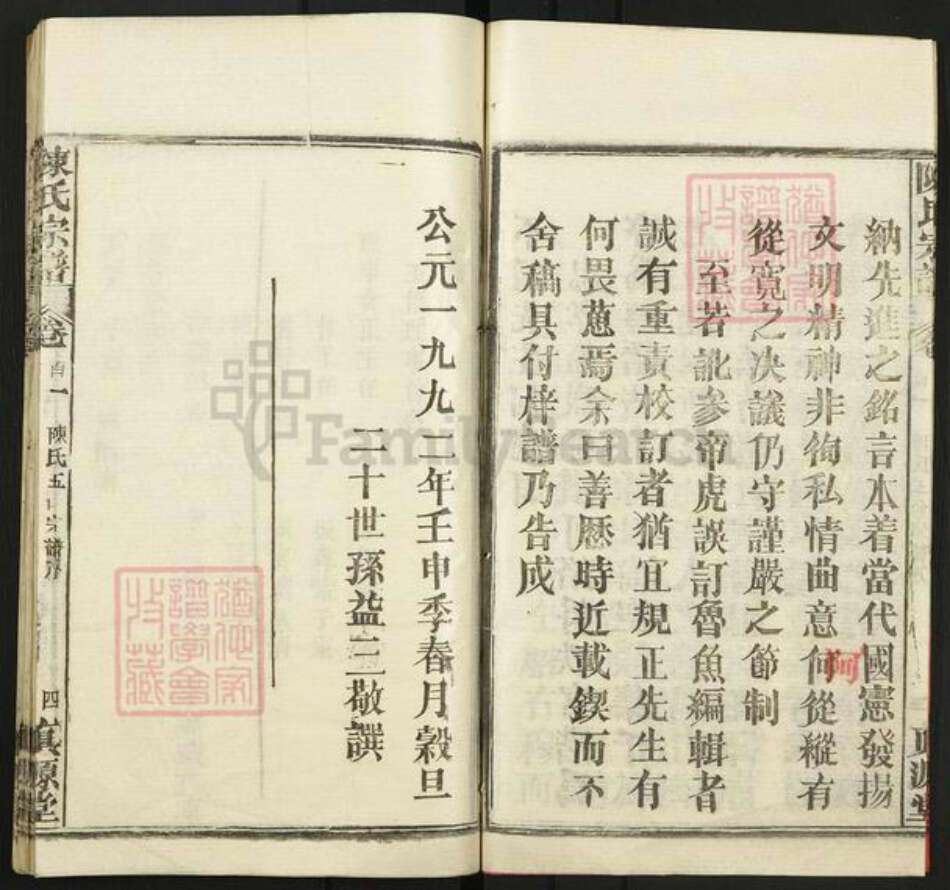 納先進之銘言本着當代國憲發揚
文明精神非徇私情曲意何從縱有
阿
從寬之決議仍守謹嚴之節制
至若訛參帝虎誤訂魯魚編輯者
誠有重責校訂者猶宜規正先生有
何畏葸焉余曰善歷時近載鍥而不
舍稿具付梓譜乃告成
公元一九九二年壬申季春月穀旦
二十世孫益三敬譔
陳氏宗譜
卷
首一
陳氏五
宗譜序
四
真源堂
FamilySearch